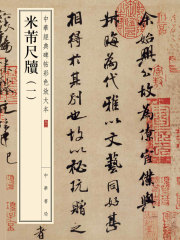 中華經典碑帖彩色放大本
米芾尺牘（一）
中華書局
余始興公故為僚宦僕與
叔晦為代雅以文藝同好甚
相得於其別也故以秘玩贈